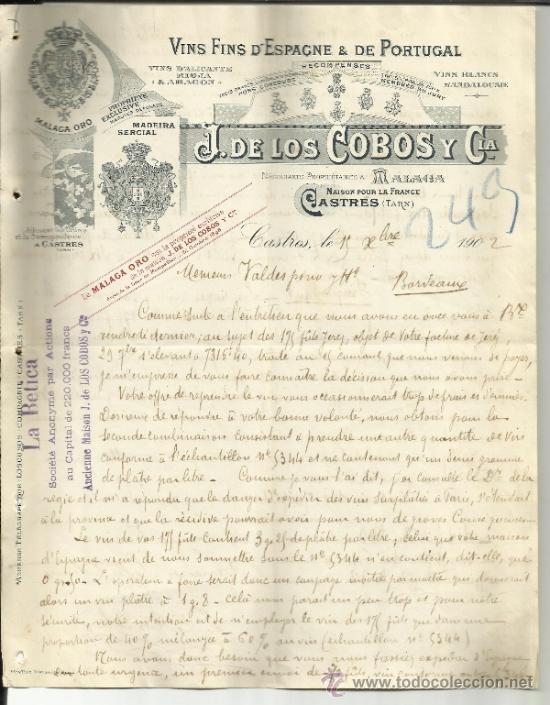 VINS FINS D'ESPAGNE & DE PORTUGAL
VINS D'ALICANTE
RIOJA
& ARAGON
RECOMPENSES
VINS BLANCS
D'ANDALOUSIE
PROPRIETE
EXCLUSIVE
MALAGA ORO
MADEIRA
SERCIAL
J. DE LOS COBOS Y CIA
NÉGOCIANTS PROPRIÉTAIRES A MALAGA
MAISON POUR LA FRANCE
CASTRES (TARN)
A CASTRES
(TARN)
249
Le MALAGA ORO est la propriété exclusive
de la maison J. DE LOS COBOS Y Cª
Castres, le 1er Xbre 1902
Messieurs Valdespino y Hº
Bordeaux
Comme suite à l'entretien que nous avons eu avec vous à Bx
vendredi dernier, au sujet des 175 fûts Jerez, objet de votre facture de Jerez,
29 7bre s'élevant à 7316.40, traite au 15 courant que nous venons de payer,
je m'empresse de vous faire connaître la décision que nous avons prise.
Votre offre de reprendre le vin vous occasionnerait trop de frais et d'ennuis.
Désireux de répondre à votre bonne volonté, nous optons pour la
seconde combinaison consistant à prendre une autre quantité de vins
conforme à l'échantillon Nº 5344 et ne contenant qu'un demi gramme
de plâtre par litre. Comme je vous l'ai dit, j'ai consulté le Dr de la
régie et il m'a répondu que le danger d'expédier des vins surplâtrés à Paris, s'étendait
à la province et que la récidive pourrait avoir pour nous de graves conséquences.
Le vin de vos 175 fûts contient 3g.25 de plâtre par litre, celui que votre maison
d'Espagne vient de nous soumettre sous le Nº 5344 n'en contient, dit-elle, que
0 gr 50. L'opération à faire serait donc un coupage moitié par moitié qui donnerait
alors un vin plâtré à 1 g. 8. Celà nous parait un peu trop et pour notre
sécurité, notre intention est de n'employer le vin des 175 fûts que dans une
proportion de 40% mélangée à 60% au vin (échantillon nº 5344)
Nous avons donc besoin que vous nous fassiez expédier d'Espagne
en toute urgence, un premier envoi de fûts, vin conforme
La Bética
Société Anonyme par Actions
au Capital de 220.000 francs
Ancienne Maison J. de LOS COBOS y Cª
todocoleccion
www.todocoleccion.net